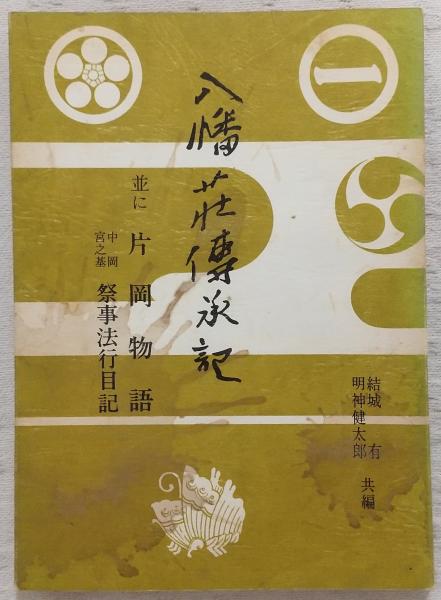 八幡荘傳承記
並に 片岡物語
中岡
宮之基 祭事法行目記
結城 有
明神健太郎 共編